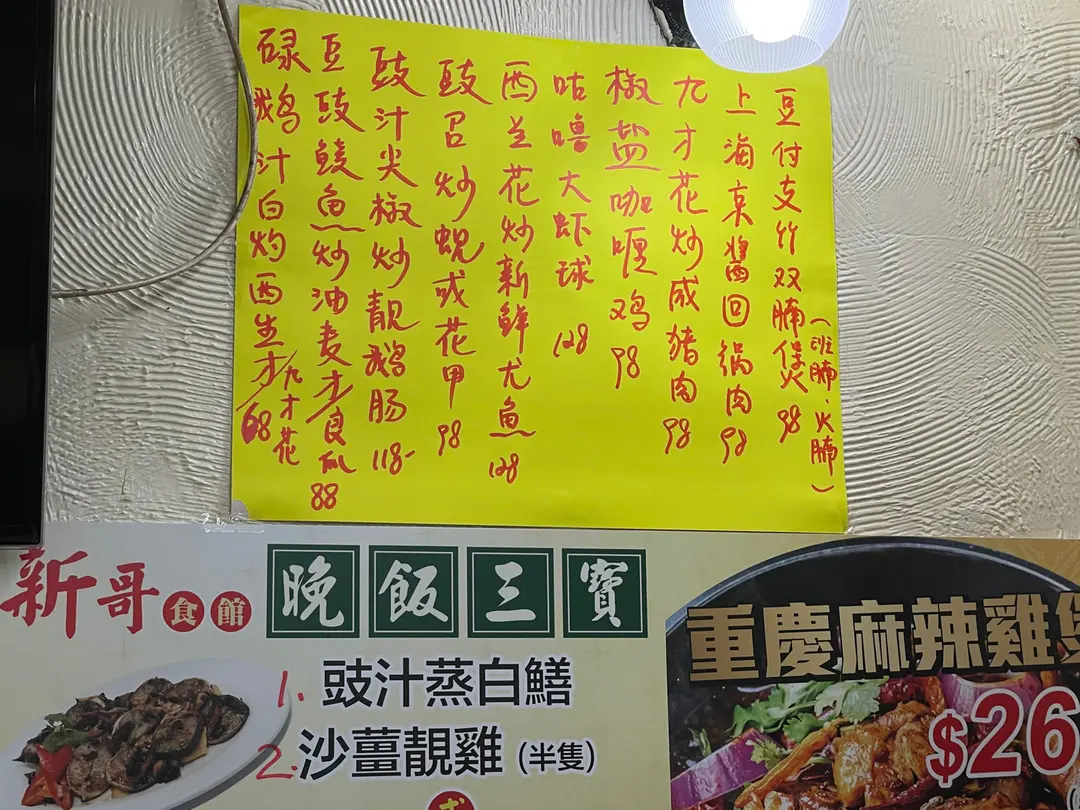 豆付支竹双腩煲 98
（班腩．火腩）
上海京酱回锅肉 98
九才花炒咸猪肉 98
椒盐咖喱鸡 98
咕噜大虾球 128
西兰花炒新鲜尤鱼 128
豉召炒蚬或花甲 98
豉汁尖椒炒靓鹅肠 118-
豆豉鲮鱼炒油麦才/良瓜 88
碌鹅汁白灼西生才/九才花 68
新哥食館
晚飯三寶
1. 豉汁蒸白鱔
2. 沙薑靚雞 (半隻)
重慶麻辣雞煲
$26